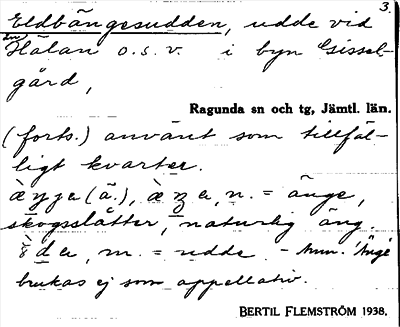 3.
Eldbängesudden, udde vid
Hälan o.s.v. i byn Gissel-
gård,
Ragunda sn och tg, Jämtl. län.
(forts.) använt som tillfäl-
ligt kvarter.
n. = änge,
skogsslåtter, naturlig äng.
m. = udde. - Anm. 'Änge'
brukas ej som appellativ.
BERTIL FLEMSTRÖM 1938.